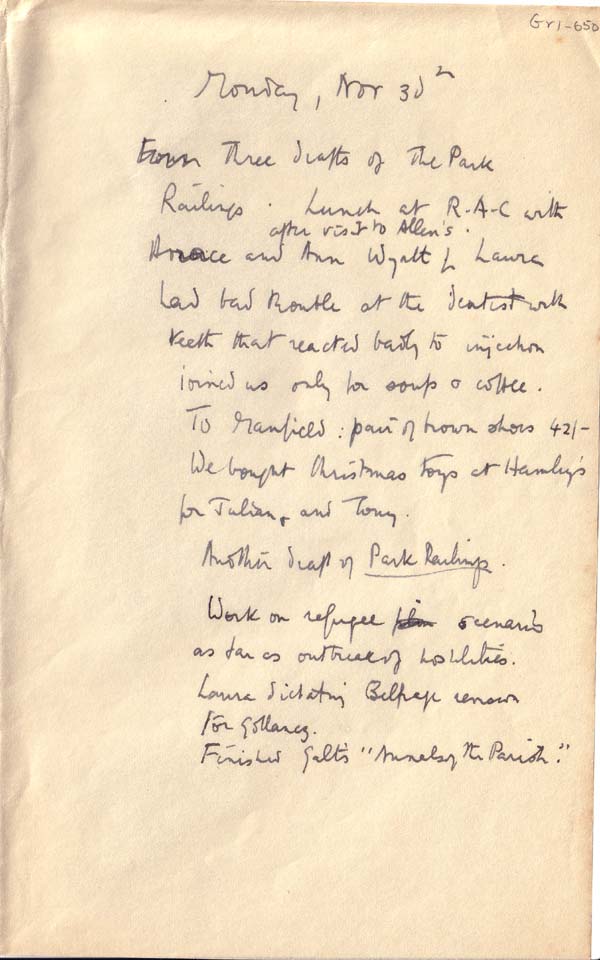 Gr1-650
Monday, Nov 30th
three drafts of the Park
Railings. Lunch at R-A-C with
after visit to Allen's.
Horace and Ann Wyatt & Laura
had bad trouble at the dentist with
teeth that reacted badly to injection
joined us only for soup & coffee.
To Manfield: pair of brown shoes 42/-
We bought Christmas toys at Hamley's
for Julian, and Tony.
Another draft of Park Railings.
Work on refugee scenario
as far as outbreak of hostilities.
Laura dictating Belfrage
for Gollancz.
Finished Galt's "Annals of the Parish."